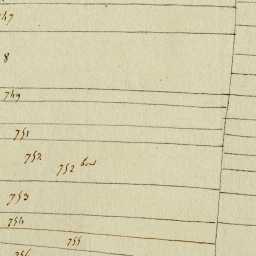 747
8
749
751
752
752 bis
753
754
755
756